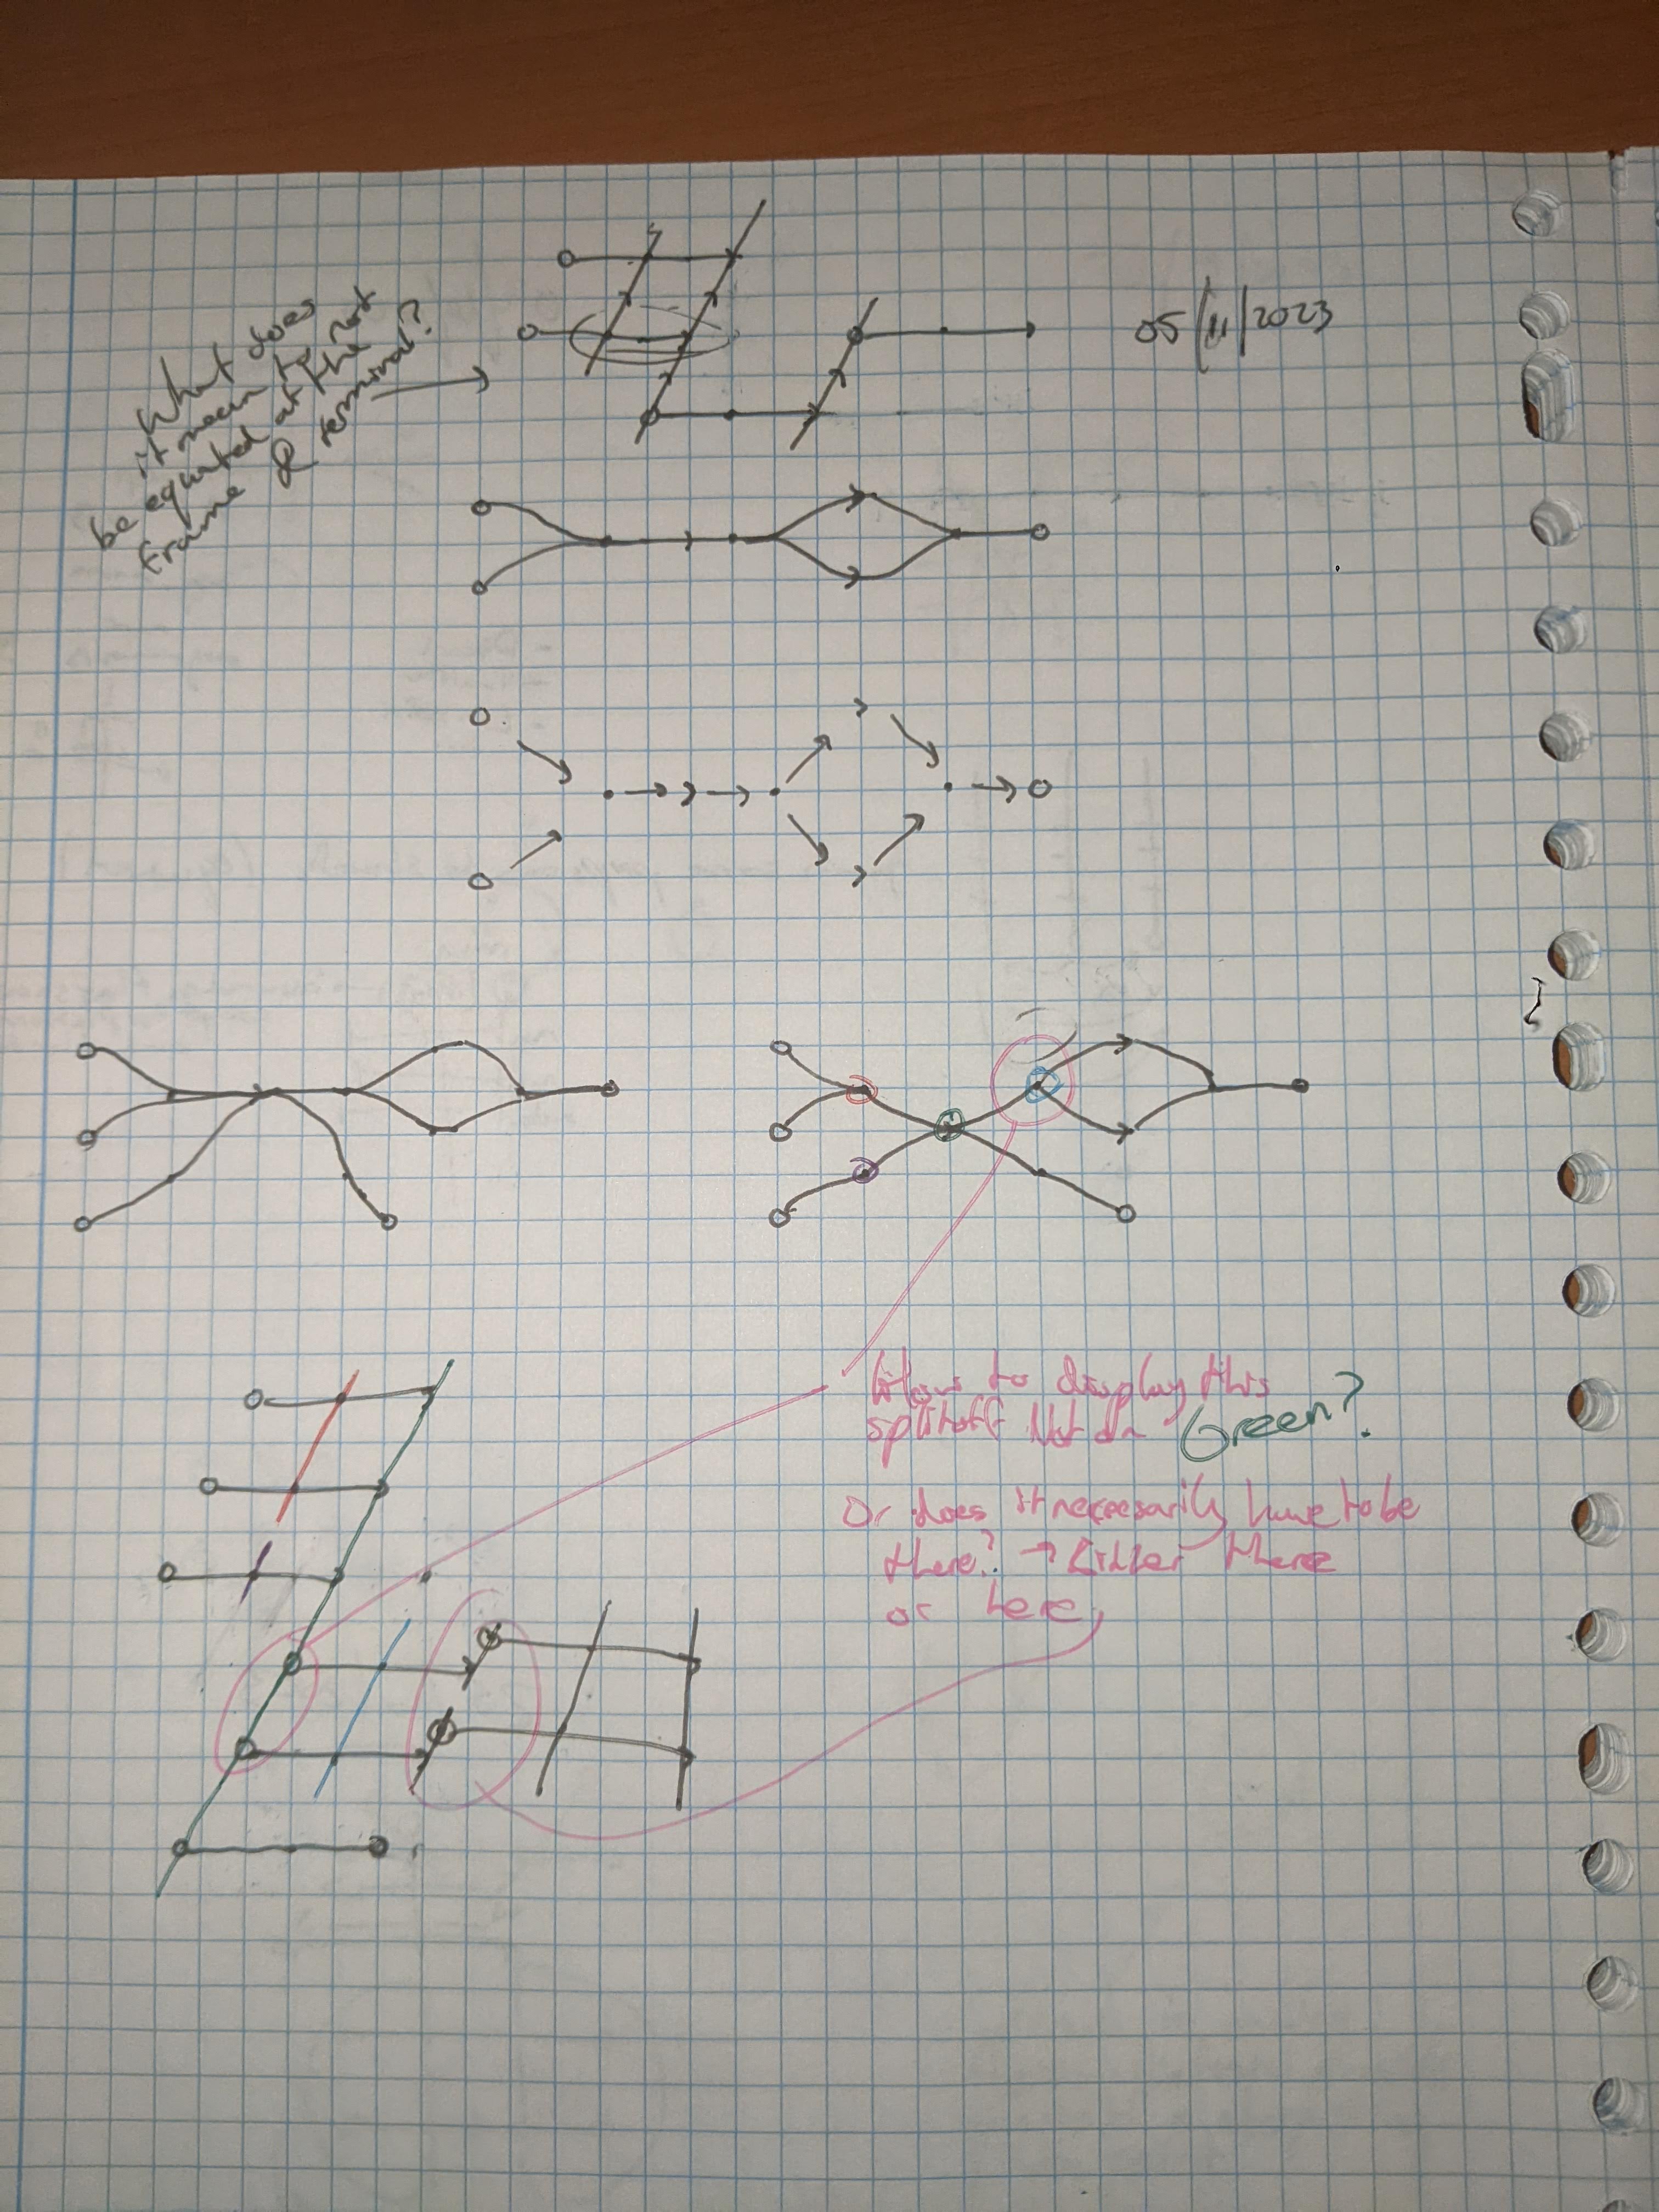 05/11/2023
What does
it mean to not
be equated at the
frame & terminal?
How to display this
splitoff Not on Green?
Or does it necessarily have to be
there? → Either there
or here